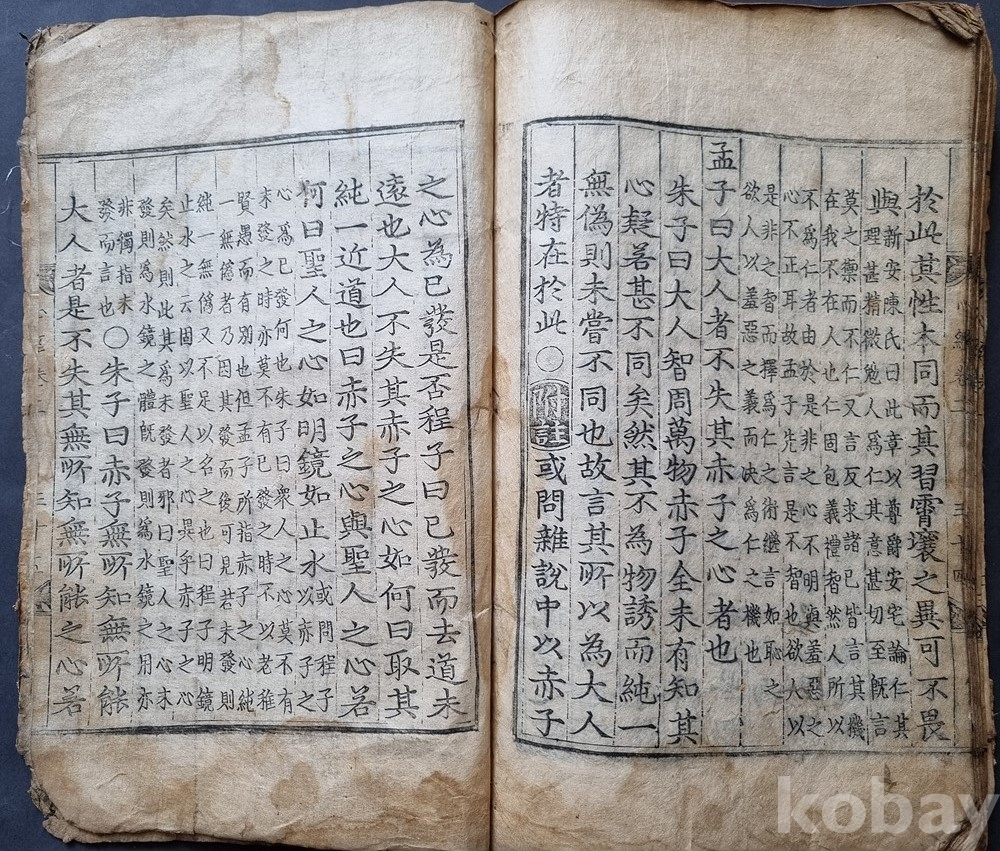 於此其性本同而其習霄壤之異可不畏
與
新安陳氏曰此章以尊爵安宅論仁其
理甚精微勉人爲仁其意甚切至旣言
莫之禦而不仁又言反求諸己皆言其機
在我不在人也仁固包義禮智然人所以
不爲仁者由於是非之心不明與羞惡之
心不正耳故孟子先言是不智也欲人以
是非之智而擇爲仁之術繼言如恥之
欲人以羞惡之義而决爲仁之機也
孟子曰大人者不失其赤子之心者也
朱子曰大人智周萬物赤子全未有知其
心疑若甚不同矣然其不為物誘而純一
無僞則未嘗不同也故言其所以為大人
者特在於此○附註或問雜說中以赤子
之心為已發是否程子曰已發而去道未
遠也大人不失其赤子之心如何曰取其
純一近道也曰赤子之心與聖人之心若
何曰聖人之心如明鏡如止水
或問程子
以赤子之
心爲已發何也朱子曰衆人之心莫不有
未發之時亦莫不有已發之時不以老稚
賢愚而有別也但孟子所指赤子之心純
一無僞者乃因其發而後可見若未發則
純一無僞又不足以名之也曰程子明鏡
止水之云固以聖人之心異乎赤子之心
矣然則此其爲未發者邪曰聖人之心未
發則爲水鏡之體旣發則爲水鏡之用亦
非獨指未
發而言也
○朱子曰赤子無所知無所能
大人者是不失其無所知無所能之心若
kobay